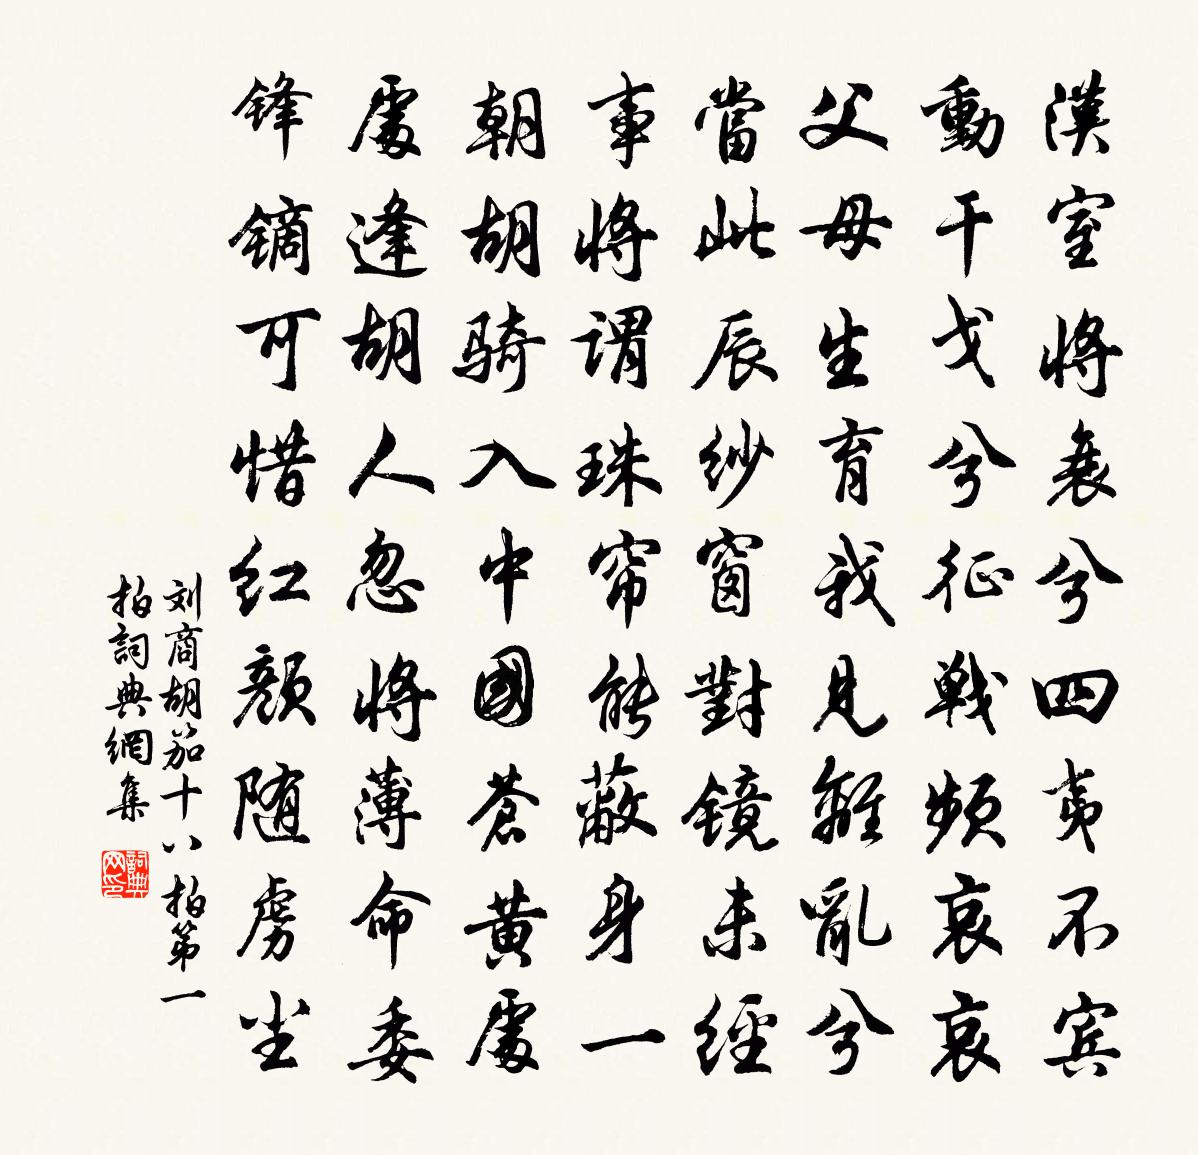 漢室將衰兮四夷不宾
動干戈兮征戰頻哀哀
父母生育我见離亂兮
當此辰纱窗對镜未經
事將謂珠帘能蔽身一
朝胡骑入中國蒼黄處
處逢胡人忽將薄命委
锋镝可惜红颜随虏尘
刘商胡笳十八拍第一
拍詞典網集
詞典网印